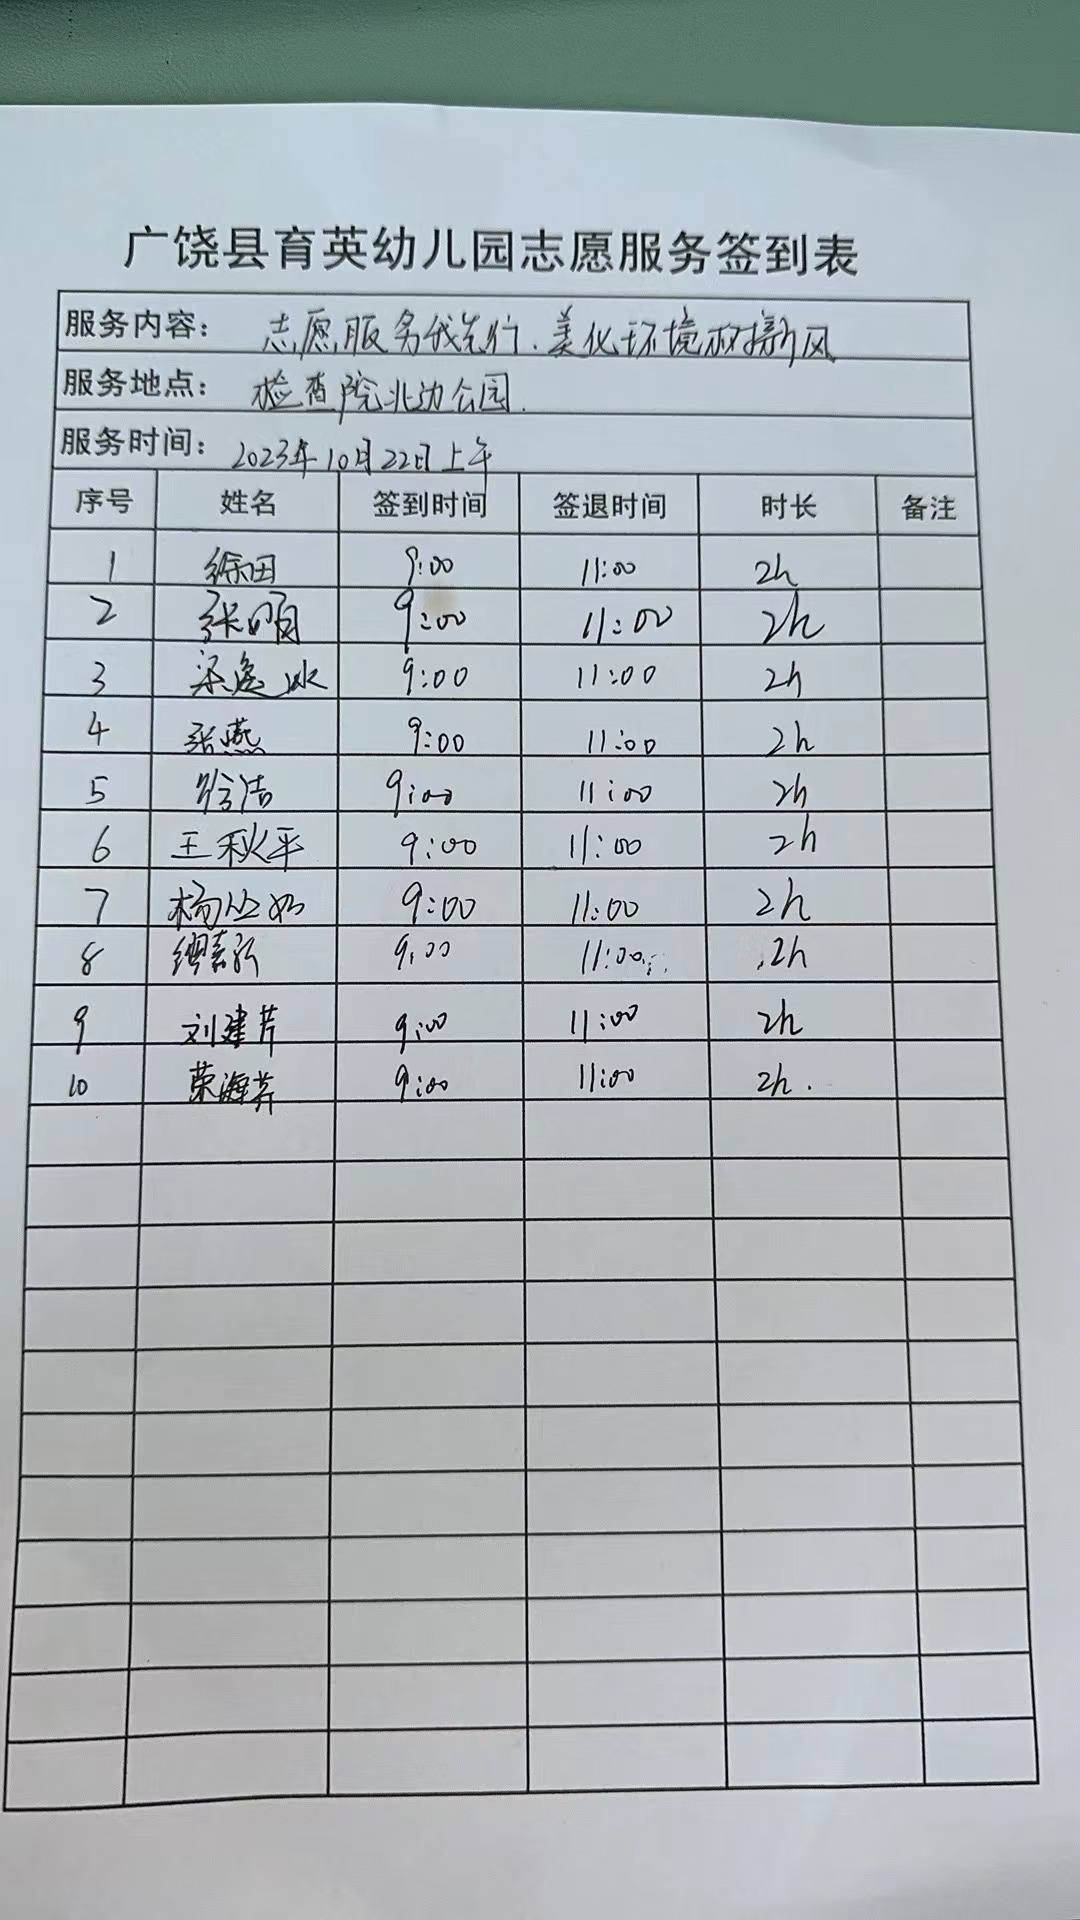 广饶县育英幼儿园志愿服务签到表
服务内容： 志愿服务我先行.美化环境树新风
服务地点： 检查院北边公园.
服务时间： 2023年10月22日上午
序号 姓名 签到时间 签退时间 时长 备注
1 徐田 9:00 11:00 2h
2 张明 9:00 11:00 2h
3 梁逸冰 9:00 11:00 2h
4 张燕 9:00 11:00 2h
5 徐洁 9:00 11:00 2h
6 王秋平 9:00 11:00 2h
7 杨 9:00 11:00 2h
8 9:00 11:00 2h
9 刘建芹 9:00 11:00 2h
10 荣海荞 9:00 11:00 2h.